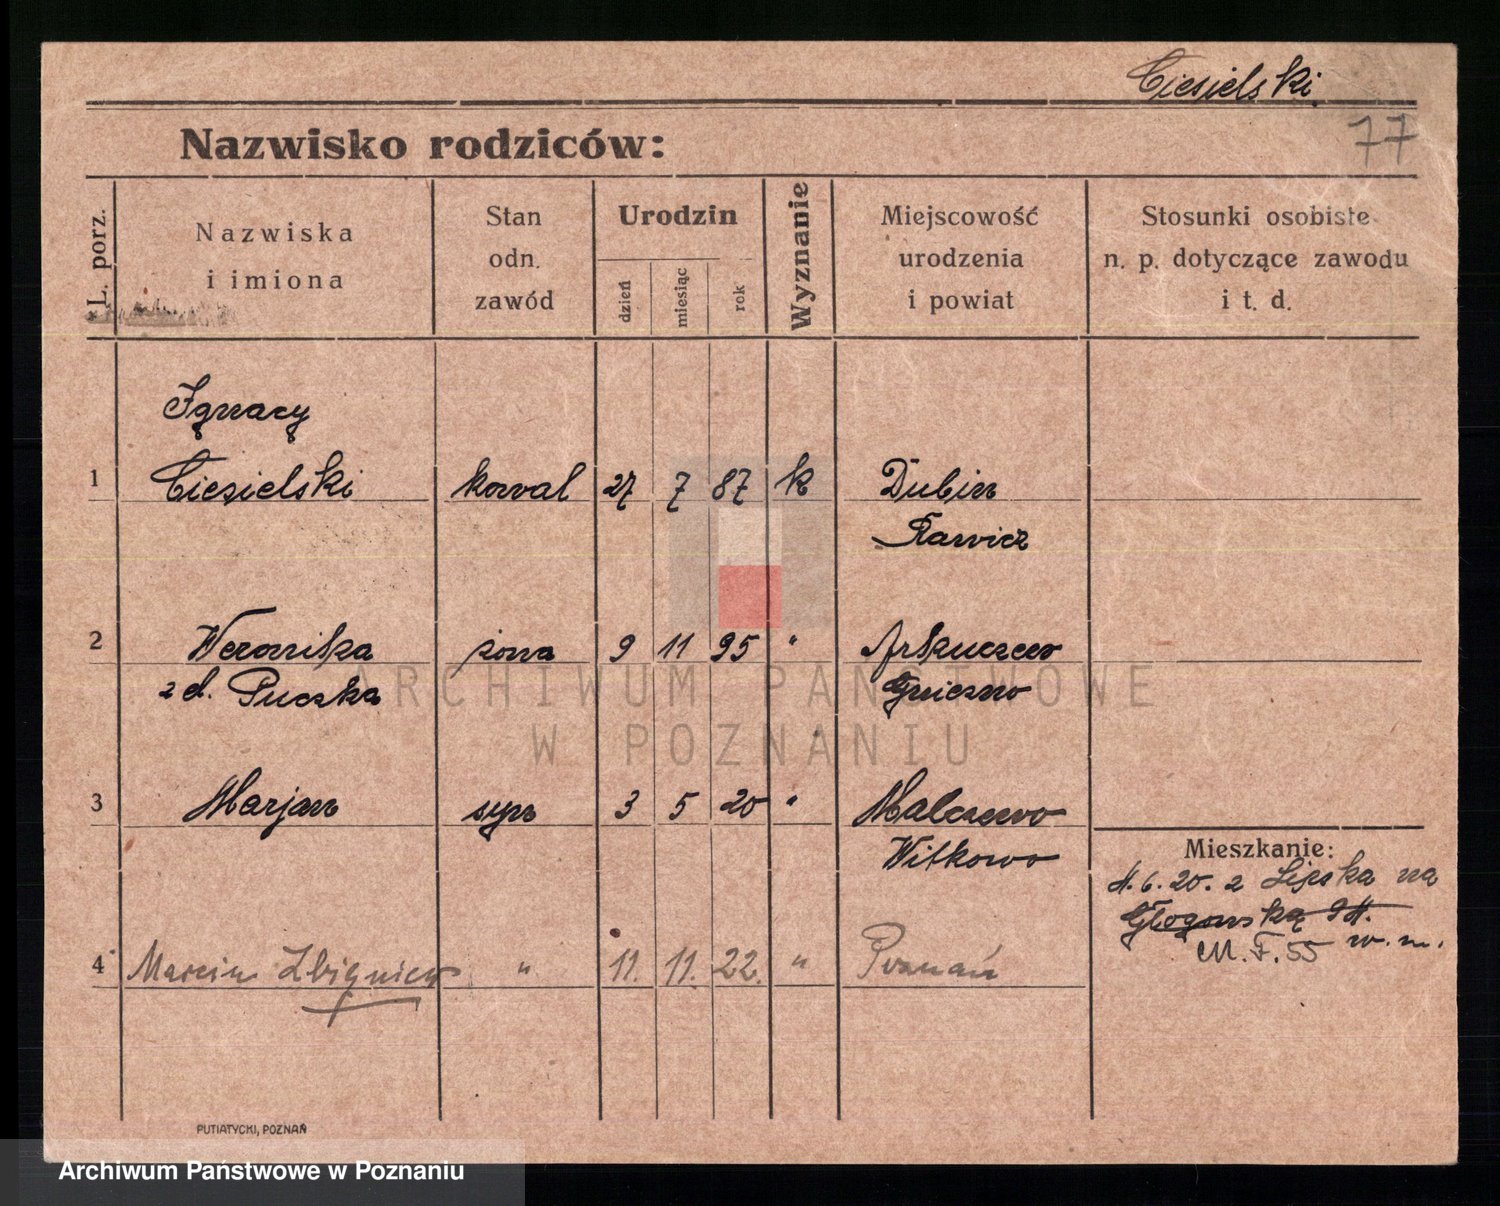 Ciesielski
77
Nazwisko rodziców:
L. porz.
Nazwiska
i imiona
Stan
odn.
zawód
Urodzin
dzień
miesiąc
rok
Wyznanie
Miejscowość
urodzenia
i powiat
Stosunki osobiste
n. p. dotyczące zawodu
i t. d.
Ignacy
1 Ciesielski kowal 27 7 87 k Dubin
Rawicz
2 Weronika żona 9 11 95 " 
z d. Puczka Gniezno
3 Marjan syn 3 5 20 " Malczewo
Witkowo
Mieszkanie:
6. 20. z Lipska na
Głogowską
M. F. 55 w. m.
4 Marcin Zbigniew " 11. 11. 22. " Poznań
ARCHIWUM PAŃSTWOWE
W POZNANIU
PUTIATYCKI, POZNAŃ
Archiwum Państwowe w Poznaniu